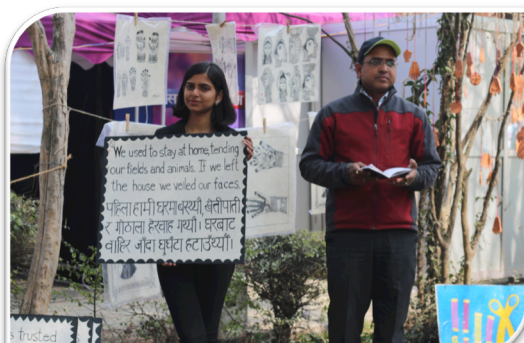 "We used to stay at home, tending
our fields and animals. If we left
the house we veiled our faces.
पहिला हामी घरमा बस्थ्यौं, खेतीपाती
र गोठाला हेरचाह गर्थ्यौं । घरबाट
बाहिर जाँदा घुम्टो हटाउँथ्यौं ।
s trusted